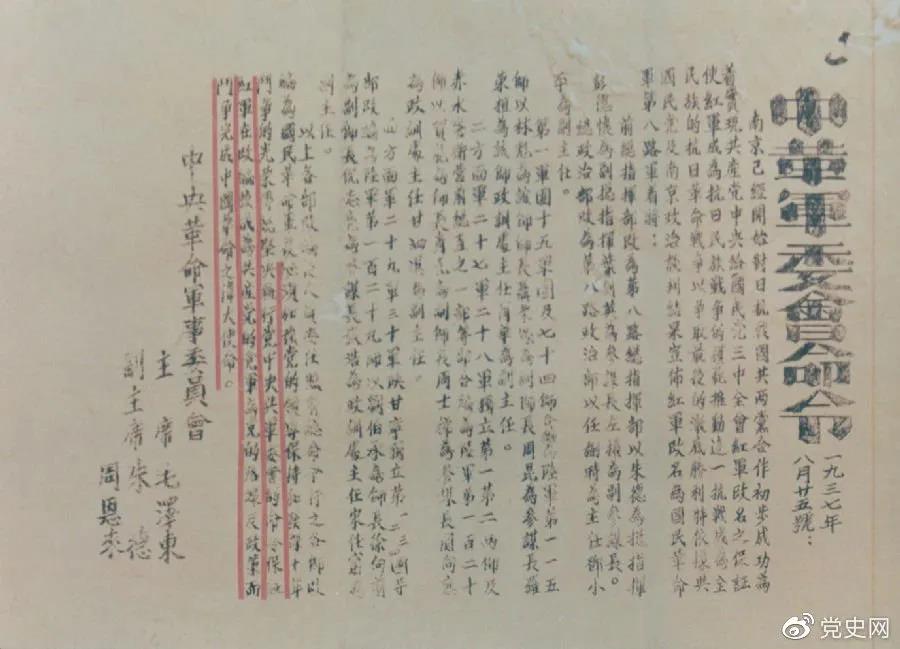 中革軍委會命令
一九三七年
八月廿五號：
南京已經開始對日抗戰國共兩黨合作初步成功為
着實現共產党中央給國民党三中全會紅軍改名之保証
使紅軍成為抗日民族戰爭的模範推動這一抗戰成為全
民族的抗日革命戰爭以爭取最後的澈底勝利特依據與
國民党及南京政治談判結果宣佈紅軍改名為國民革命
軍第八路軍着將：
前總指揮部改為第八路總指揮部以朱德為總指揮
彭德懷為副總指揮葉劍英為參謀長左權為副參謀長。
總政治部改為第八路政治部以任弼時為主任鄧小
平為副主任。
第一軍團十五軍團及七十四師合編為陸軍第一一五
師以林彪為該師師長聶榮臻為副師長周昆為參謀長羅
榮桓為該師政訓處主任蕭華為副主任。
二方面軍二十七軍二十八軍獨立第一第二兩師及
赤水警衛營前總直之一部等部合編為陸軍第一百二十
師以賀龍為師長蕭克為副師長周士第為參謀長関向应
為政訓處主任甘泗淇為副主任。
四方面軍二十九軍三十軍陝甘寧獨立第一二三四等
部改編為陸軍第一百二十九師以劉伯承為師長徐向前
為副師長倪志亮為參謀長張浩為政訓處主任宋任窮為
副主任。
以上各部改編後人員委任照前總命令行之各部改
編為國民革命軍後必須加强黨的領導保持和發揮十年
鬥爭的光榮傳統堅決執行黨中央與軍委會的命令保証
紅軍在改編後成為共產党的党軍為党的路線及政策而
鬥爭完成中國革命之偉大使命。
中央革命軍事委員會
主席毛澤東
副主席朱德
周恩来
党史网